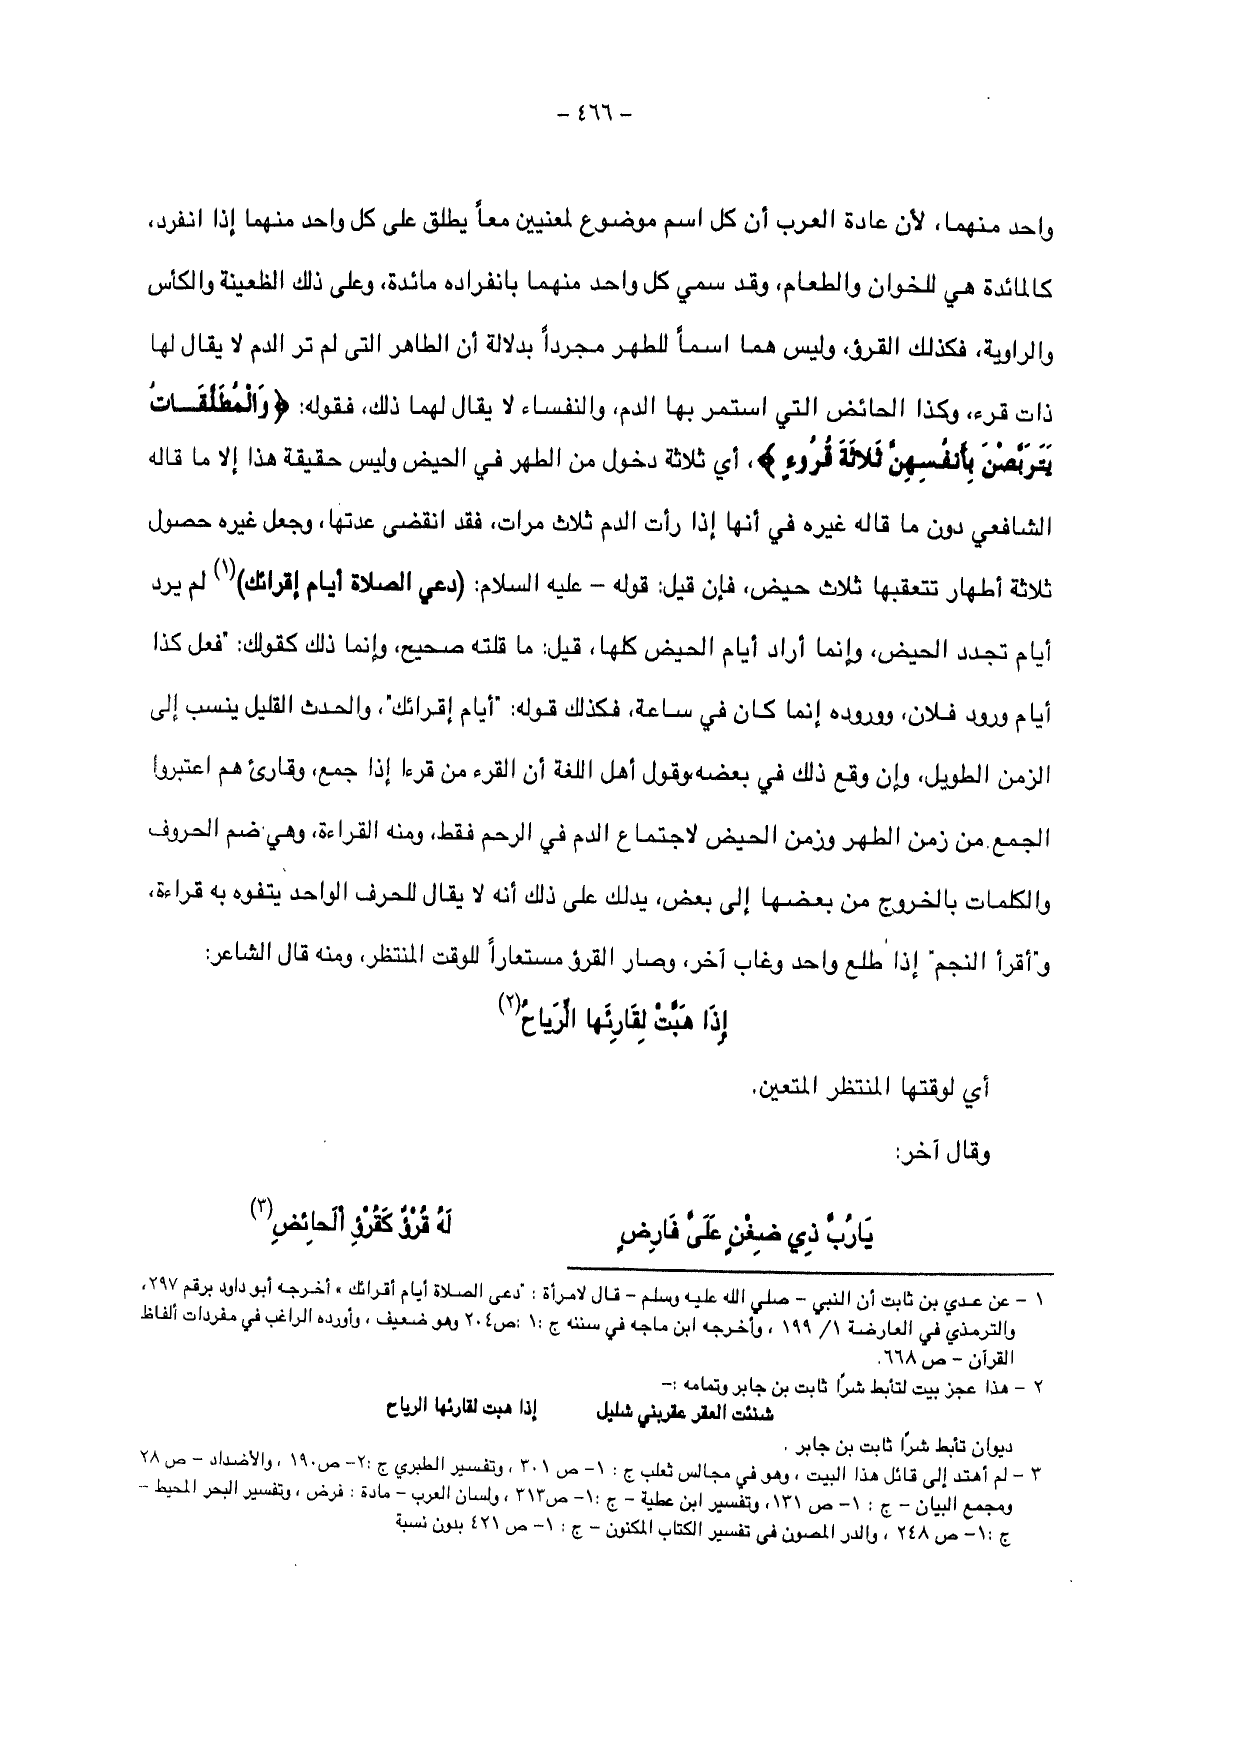 – ٤٦٦ –
واحد منهما، لأن عادة العرب أن كل اسم موضوع لمعنيين معاً يطلق على كل واحد منهما إذا انفرد،
كالمائدة هي للخوان والطعام، وقد سمي كل واحد منهما بانفراده مائدة، وعلى ذلك الظعينة والكأس
والراوية، فكذلك القرؤ، وليس هما اسماً للطهر مجرداً بدلالة أن الطاهر التي لم تر الدم لا يقال لها
ذات قرء، وكذا الحائض التي استمر بها الدم، والنفساء لا يقال لهما ذلك، فقوله: ﴿وَالْمُطَلَّقَاتُ
يَتَرَبَّصْنَ بِأَنفُسِهِنَّ ثَلَاثَةَ قُرُوءٍ﴾، أي ثلاثة دخول من الطهر في الحيض وليس حقيقة هذا إلا ما قاله
الشافعي دون ما قاله غيره في أنها إذا رأت الدم ثلاث مرات، فقد انقضى عدتها، وجعل غيره حصول
ثلاثة أطهار تتعقبها ثلاث حيض، فإن قيل: قوله – عليه السلام: (دعي الصلاة أيام إقرائك)(١) لم يرد
أيام تجدد الحيض، وإنما أراد أيام الحيض كلها، قيل: ما قلته صحيح، وإنما ذلك كقولك: "فعل كذا
أيام ورود فلان، ووروده إنما كان في ساعة، فكذلك قوله: "أيام إقرائك"، والحدث القليل ينسب إلى
الزمن الطويل، وإن وقع ذلك في بعضه، وقول أهل اللغة أن القرء من قرءا إذا جمع، وقارئ هم اعتبروا
الجمع من زمن الطهر وزمن الحيض لاجتماع الدم في الرحم فقط، ومنه القراءة، وهي ضم الحروف
والكلمات بالخروج من بعضها إلى بعض، يدلك على ذلك أنه لا يقال للحرف الواحد يتفوه به قراءة،
و"أقرأ النجم" إذا طلع واحد وغاب آخر، وصار القرؤ مستعاراً للوقت المنتظر، ومنه قال الشاعر:
إِذَا هَبَّتْ لِقَارِئِها الرِّيَاحُ(٢)
أي لوقتها المنتظر المتعين.
وقال آخر:
يَارُبَّ ذِي ضِغْنٍ عَلَيَّ فَارِضٍ لَهُ قُرْؤٌ كَقُرْؤِ الْحائِضِ(٣)
١ – عن عدي بن ثابت أن النبي – صلى الله عليه وسلم – قال لامرأة : "دعى الصلاة أيام أقرائك » أخرجه أبو داود برقم ٢٩٧،
والترمذي في العارضة ١/ ١٩٩ ، وأخرجه ابن ماجه في سننه ج :١ :ص٢٠٤ وهو ضعيف ، وأورده الراغب في مفردات ألفاظ
القرآن – ص ٦٦٨.
٢ – هذا عجز بيت لتأبط شرًا ثابت بن جابر وتمامه :–
شنئت العقر عقربني شليل إذا هبت لقارئها الرياح
ديوان تأبط شرًا ثابت بن جابر .
٣ – لم أهتد إلى قائل هذا البيت ، وهو في مجالس ثعلب ج : ١– ص ٣٠١ ، وتفسير الطبري ج :٢– ص١٩٠ ، والأضداد – ص ٢٨
ومجمع البيان – ج : ١– ص ١٣١، وتفسير ابن عطية – ج :١– ص٣١٣ ، ولسان العرب – مادة : فرض ، وتفسير البحر المحيط –
ج :١– ص ٢٤٨ ، والدر المصون في تفسير الكتاب المكنون – ج : ١– ص ٤٢١ بدون نسبة